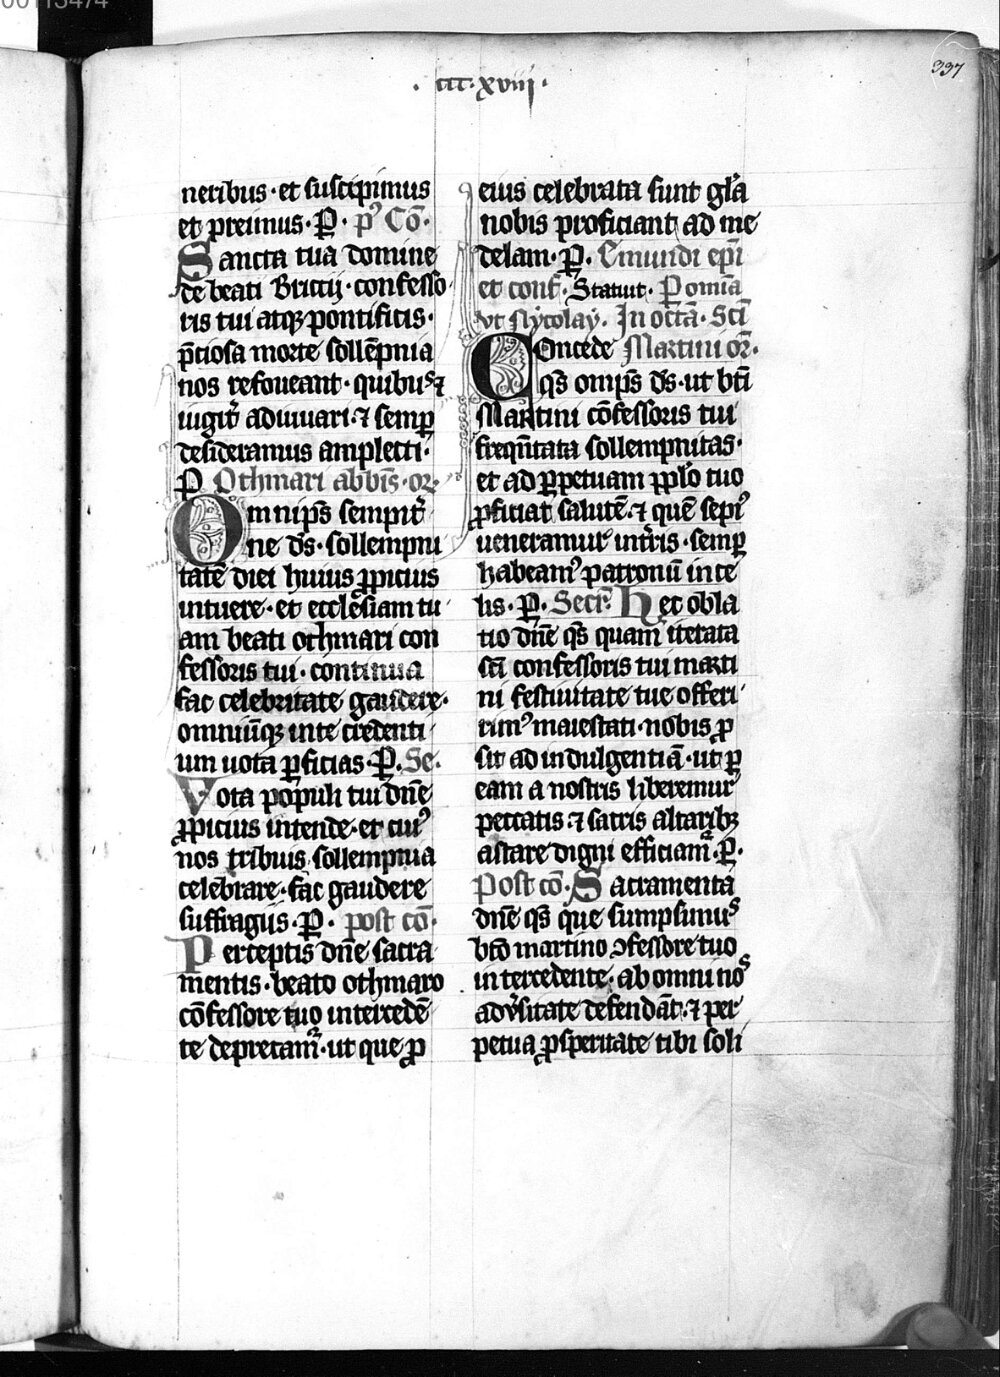 00113474
. ccc . xviii .
337
neribus · et suscipimus
et preimus · P̱ · p᷒ Cō ·
Sancta tua domine
de beati Briccij · confesso
ris tui atqꝫ pontificis ·
p̄ciosa morte sollēpnia
nos refoueant · quibus ⁊
iugit᷑ adiuuari · ⁊ semꝑ
desideramus amplecti ·
P̱ Othmari abb̄is · or̄
Omnip̄s sempit᷑
ne ds̄ · sollempni
tatē diei huius ꝓpicius
intuere · et ecclesiam tu
am beati othmari con
fessoris tui · continua
fac celebritate gaudere ·
omniūqꝫ in te credenti
um uota ꝑficias · P̱ · Se ·
Vota populi tui dn̄e
ꝓpicius intende · et cui᷒
nos tribuis sollempnia
celebrare · fac gaudere
suffragiis · P̱ · post cō ·
Perceptis dn̄e sacra
mentis · beato othmaro
cōfessore tuo intercedē
te deprecam᷑ · ut que ꝓ
eius celebrata sunt gl̄a
nobis proficiant ad me
delam · P̱ · Emundi ep̄i
et conf · Statuit · P omīa
vt Nycolay · In octā · Sc̄i
Concede Martini or̄ ·
qs̄ omp̄s ds̄ · ut bt̄i
Martini cōfessoris tui
freqn̄tata sollempnitas ·
et ad ꝑpetuam pplo᷑ tuo
ꝓficiat salutē · ⁊ quē sepi᷒
ueneramur in tr̄ris · semꝑ
habeam᷒ patronū in ce
lis · P̱ · Secr̄ · Hec obla
tio dn̄e qs̄ quam iterata
sc̄i confessoris tui marti
ni festiuitate tue offeri
rim᷒ maiestati · nobis ꝓ
sit ad indulgentiā · ut ꝑ
eam a nostris liberemur
peccatis · ⁊ sacris altaribꝫ
astare digni efficiam᷑ · P̱ ·
Post cō · Sacramenta
dn̄e qs̄ que sumpsimus
bt̄o martino ꝯfessore tuo
intercedente · ab omni nos
adv᷑sitate defendāt · ⁊ per
petua ꝓsperitate tibi soli